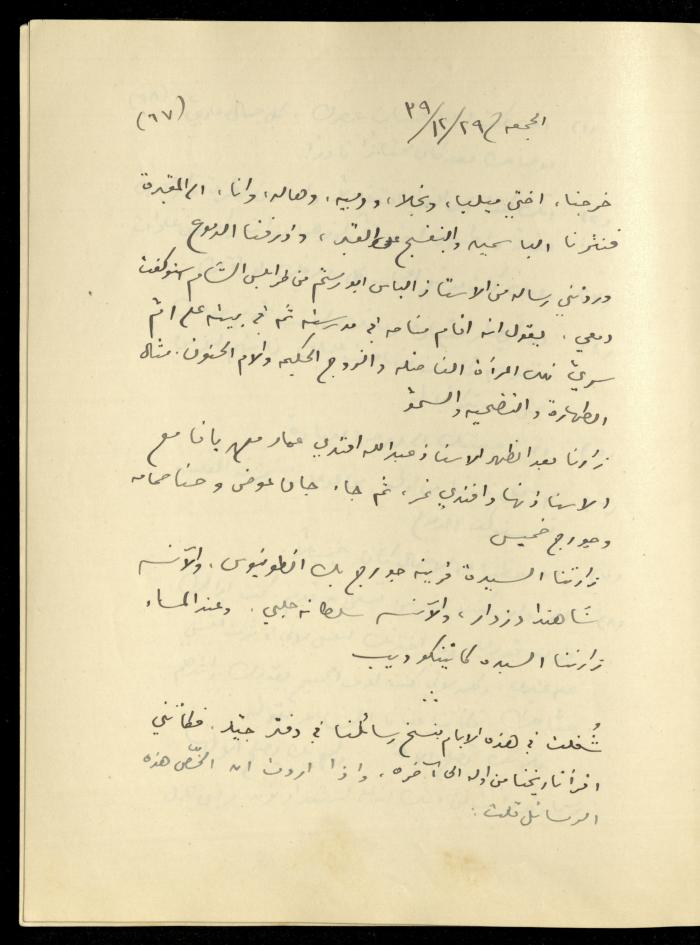 الجمعه ٢٩/١٢/٣٩
(٦٧)
خرجنا، اختي ميليا، ونجلا، ودميه، وهاله، وانا، الى المقبرة
فنثرنا الياسمين والبنفسج على القبر، وذرفنا الدموع
وردتني رساله من الاستاذ الياس ابو رستم من طرابلس الشام استوكفت
دمعي. يقول انه اقام مناحه في مدرسته ثم في بيته على ام
سري تلك المرأة الفاضله والزوج الحكيمه والام الحنون. مثال
الطهارة والتضحيه والسمو
زارنا بعد الظهر الاستاذ عبدالله افندي من يافا مع
الاستاذ افندي نمر، ثم جاء جان عوض وحنا حمامه
وجورج خميس
زارتنا السيدة قرينة جورج بك انطونيوس، والآنسه
شاهندا دزدار، والآنسه سلطانه حلبي. وعند المساء
زارتنا السيده كاتينكو ديب
شُغلت في هذه الايام بنسخ رسائلنا في دفتر جيّد. فكأنني
اقرأ تاريخنا من اوله الى آخره، واذا اردت ان الخّص هذه
الرسائل قلت: